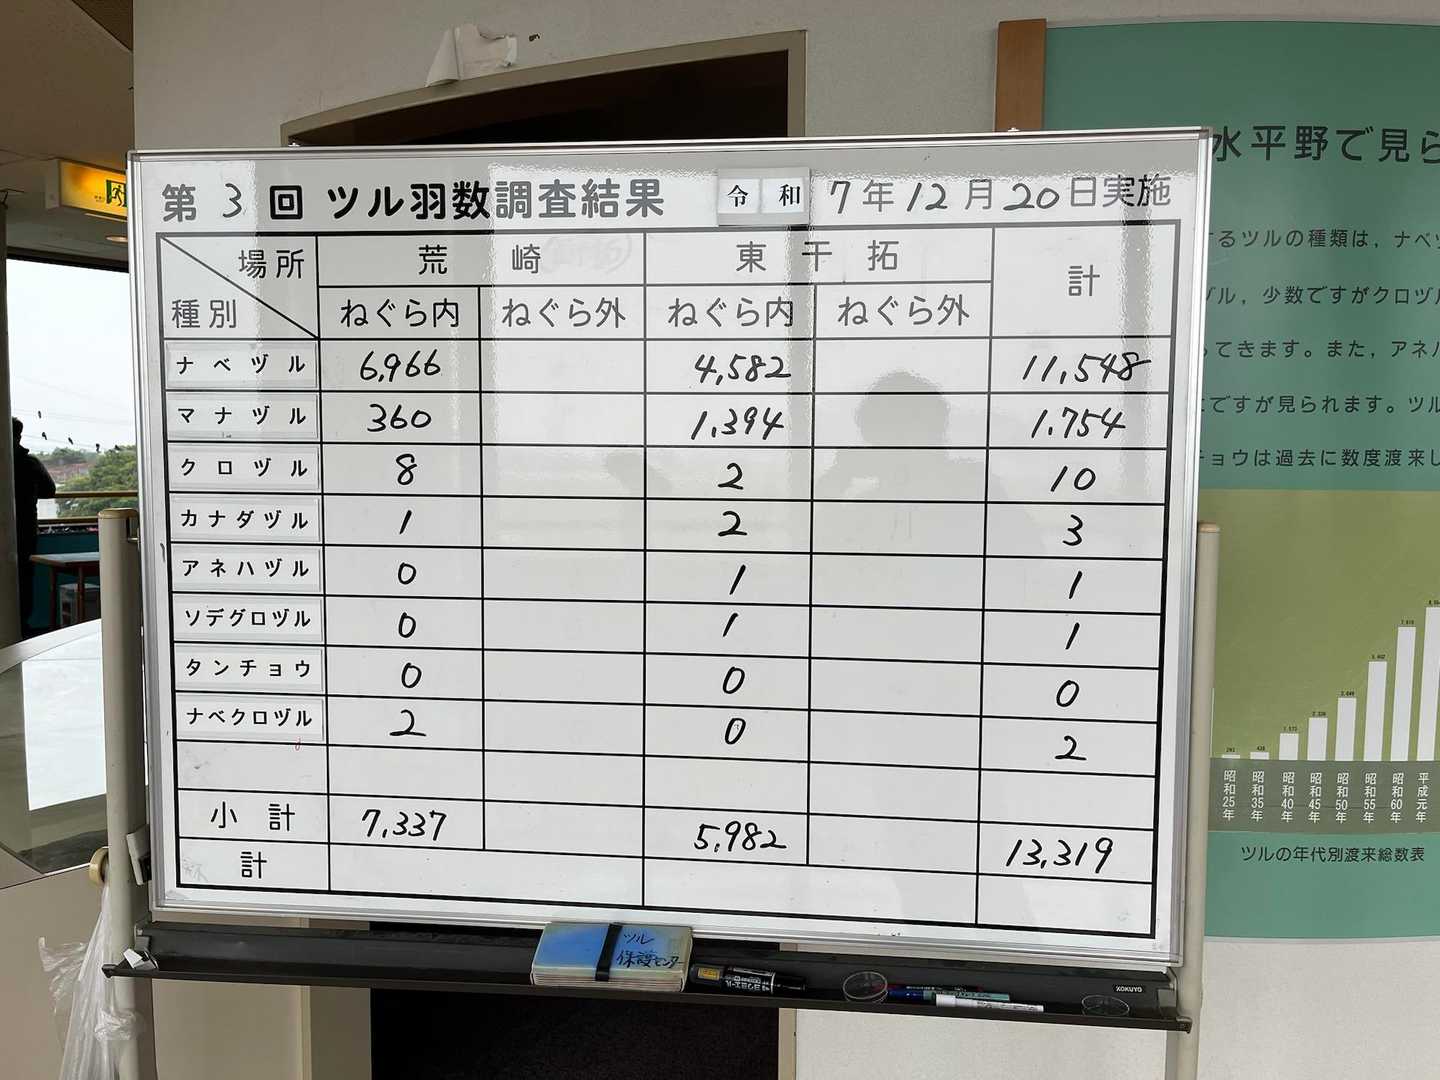 第 3 回 ツル羽数調査結果 令和 7年12月20日実施
場所 荒崎 東干拓 計
種別 ねぐら内 ねぐら外 ねぐら内 ねぐら外
ナベヅル 6,966 4,582 11,548
マナヅル 360 1,394 1,754
クロヅル 8 2 10
カナダヅル 1 2 3
アネハヅル 0 1 1
ソデグロヅル 0 1 1
タンチョウ 0 0 0
ナベクロヅル 2 0 2
小計 7,337 5,982 13,319
計
ツル
保護センター
KOKUYO
水平野で見ら
するツルの種類は，ナベ
ヅル，少数ですがクロヅル
てきます。また，アネハ
ですが見られます。ツル
チョウは過去に数度渡来し
昭和25年 昭和35年 昭和40年 昭和45年 昭和50年 昭和55年 昭和60年 平成元年
ツルの年代別渡来総数表